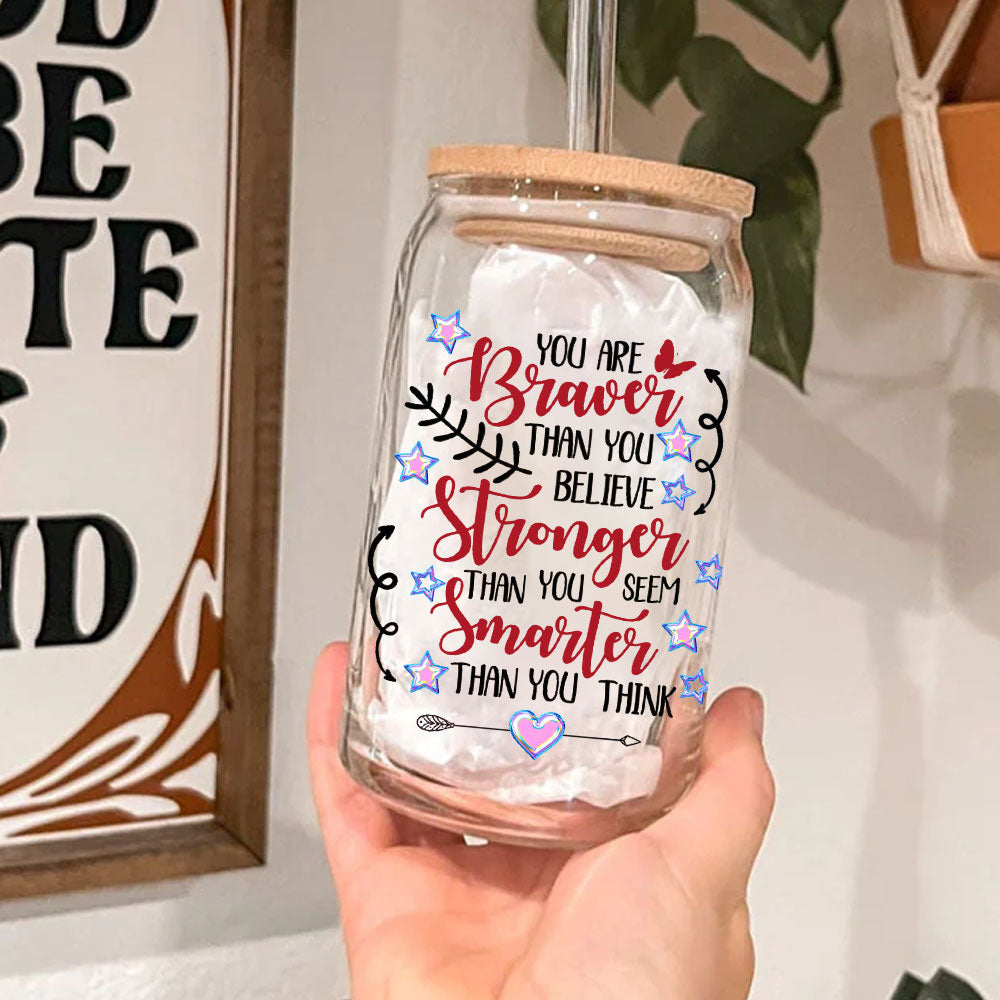 BE
YOU ARE
Braver
THAN YOU
BELIEVE
Stronger
THAN YOU SEEM
Smarter
THAN YOU THINK